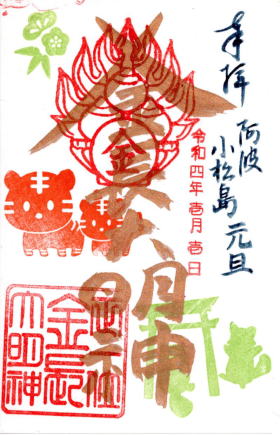 奉拝
阿波
小松島
元旦
令和四年壱月壱日
金
金長大明神
正一位
金長
大明神